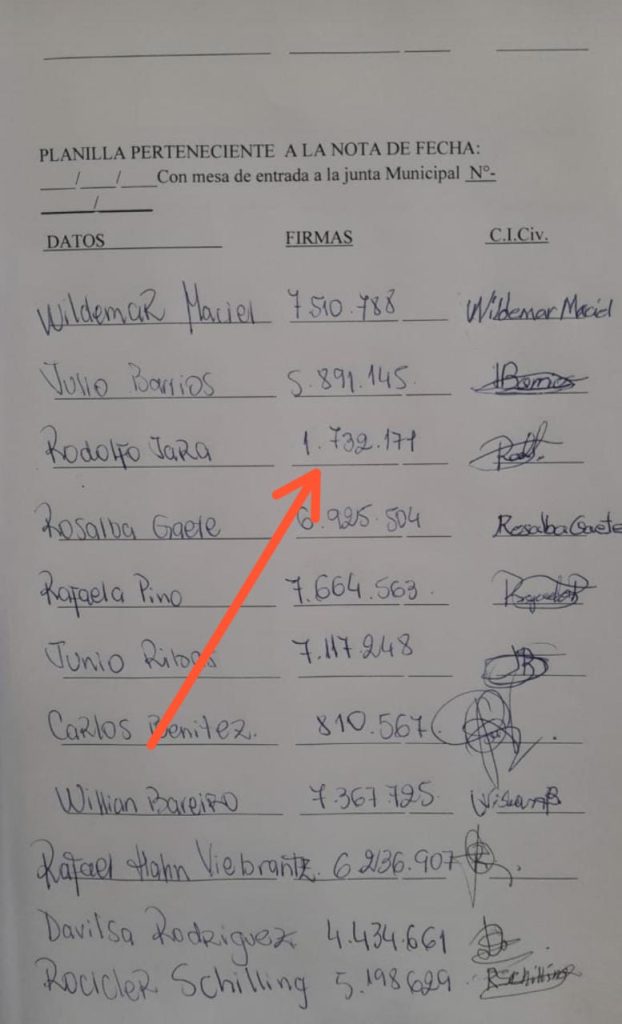 PLANILLA PERTENECIENTE A LA NOTA DE FECHA:
___/___/___Con mesa de entrada a la junta Municipal N°-
_____/_____
DATOS FIRMAS C.I.Civ.
Wildemar Maciel 7510.788 Wildemar Maciel
Julio Barrios 5.891.145 JBarrios
Rodolfo Jara 1.732.171
Rosalba Gaete 6.925.504 Rosalba Gaete
Rafaela Pino 7.664.563
Junio Ribas 7.117.248
Carlos Benitez. 810.567
Willian Bareiro 7.367.725
Rafael Hahn Viebrantz. 6.236.907
Davilsa Rodriguez 4.434.661
Rocicler Schilling 5.198629 RSchilling